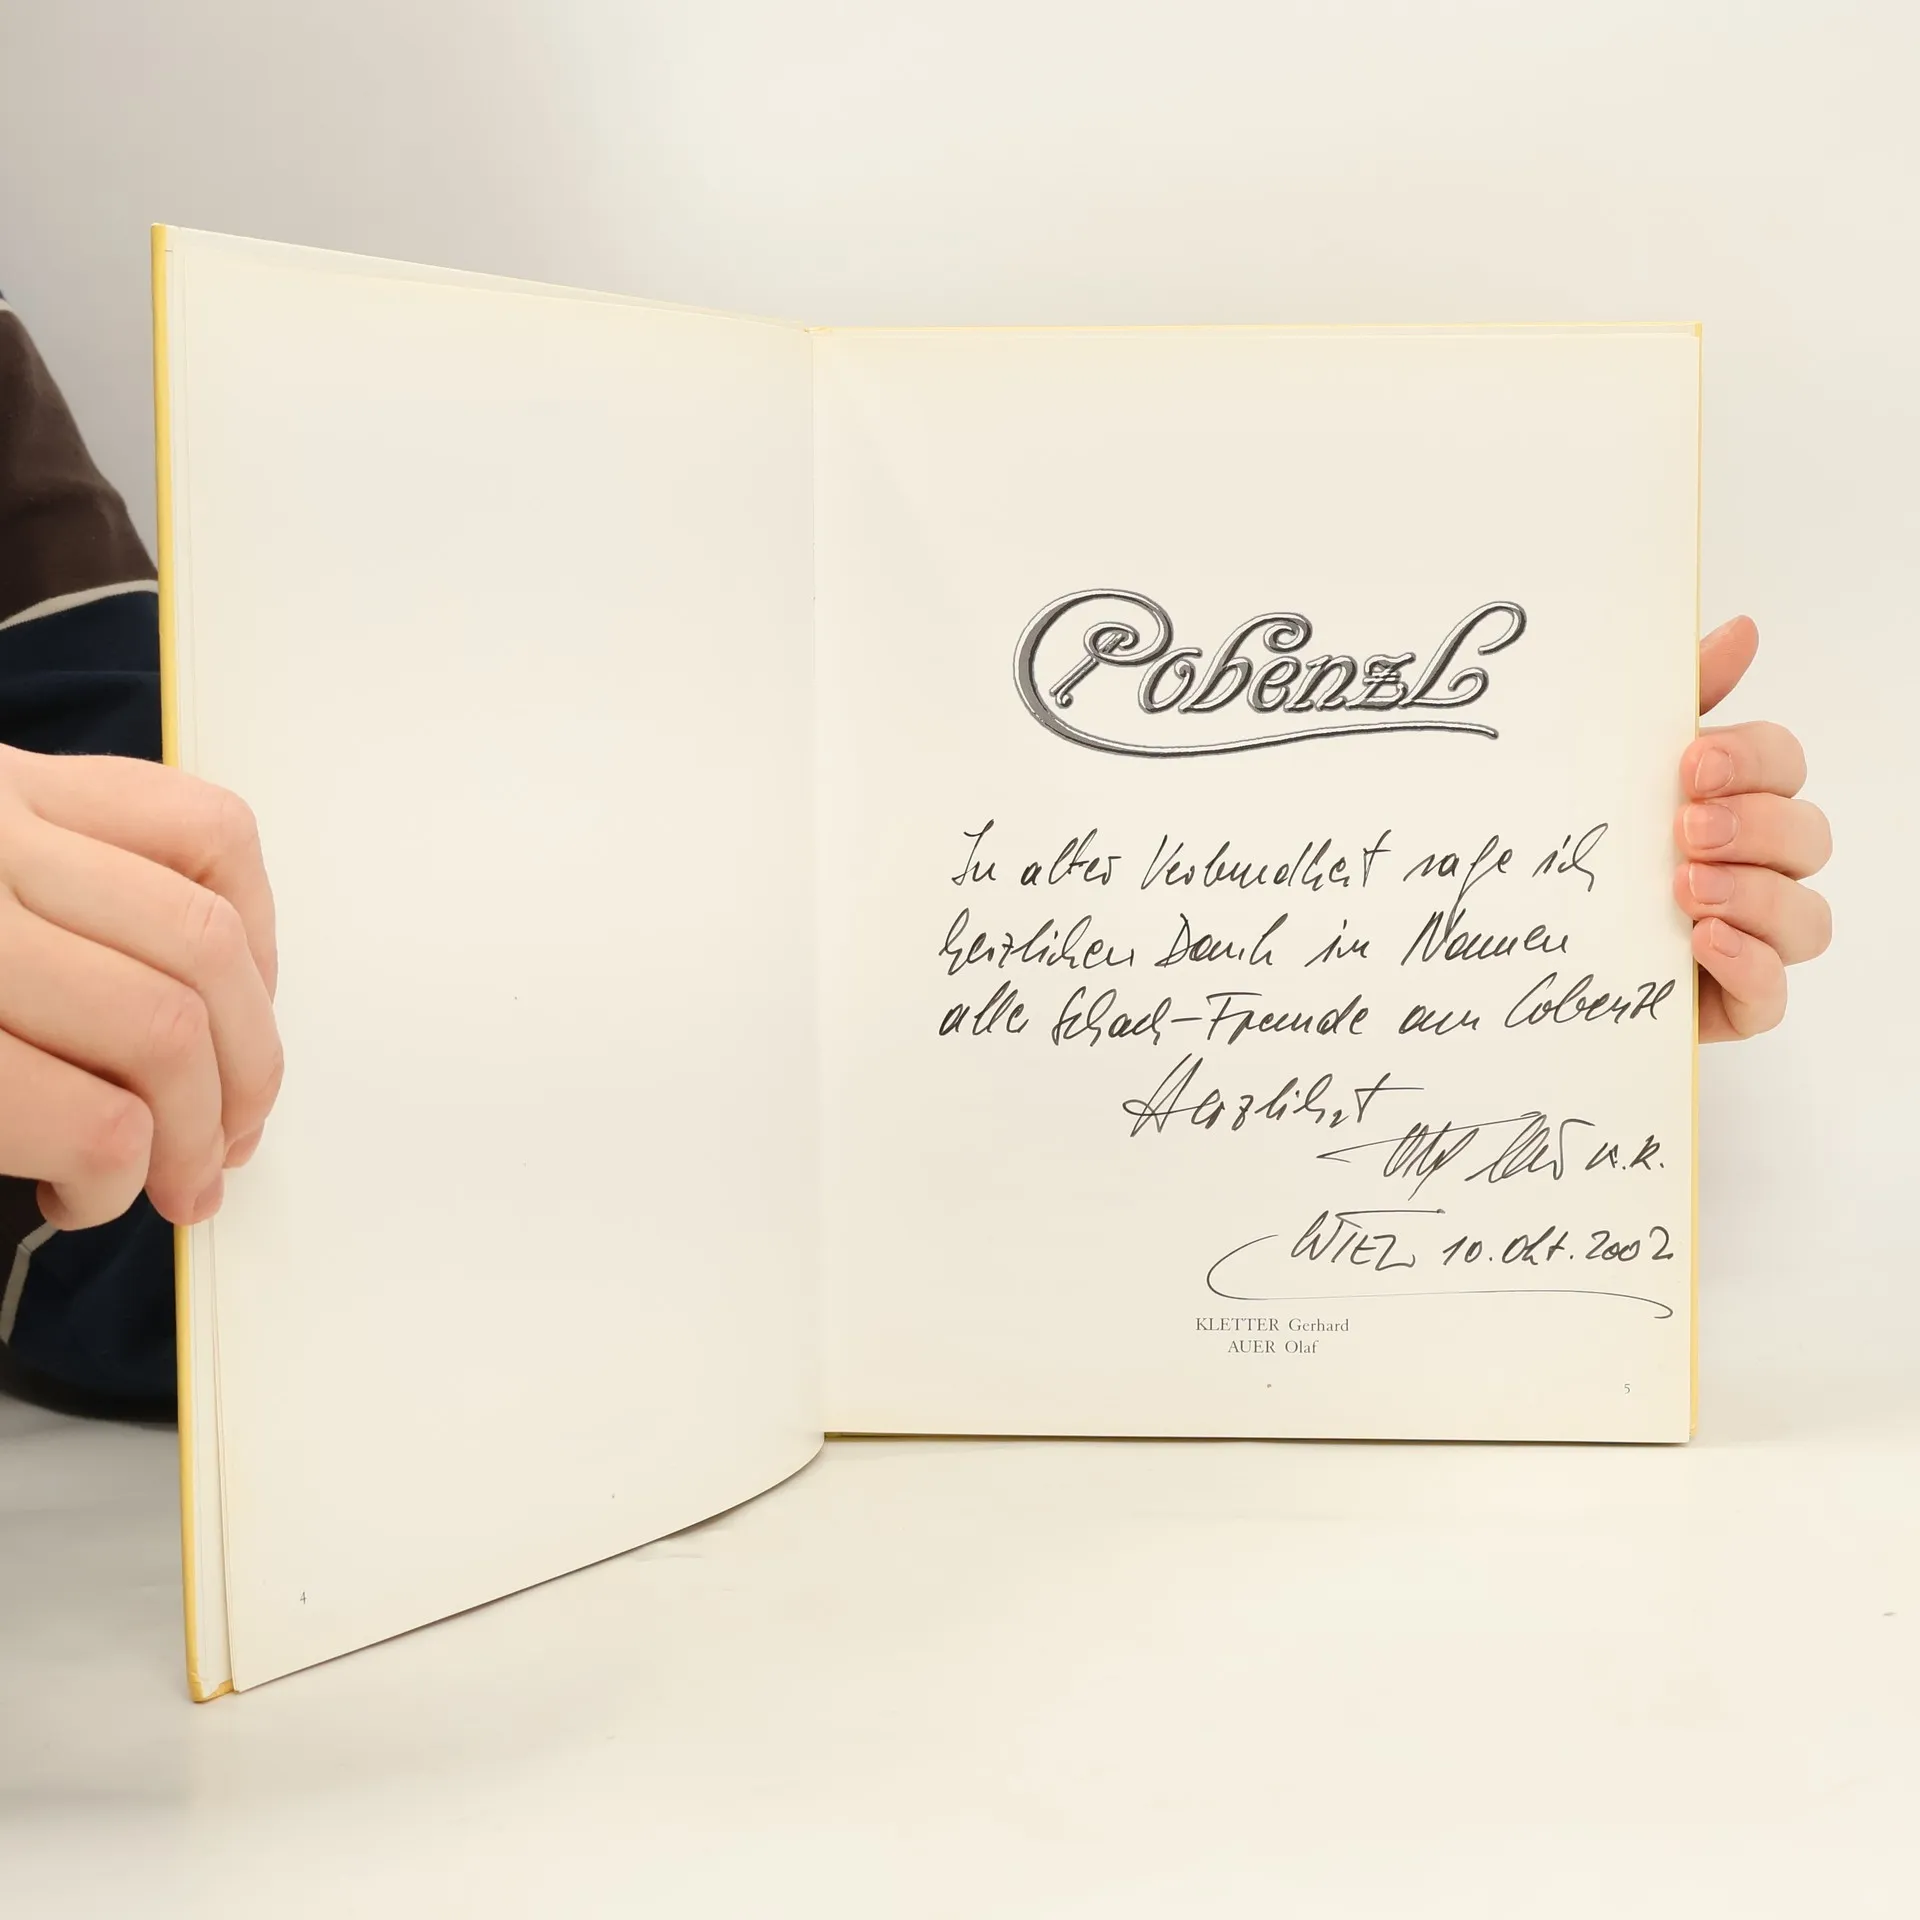 Cobenzl
In alter Verbundheit sage ich
herzlichen Dank im Namen
aller Schach-Freunde am Cobenzl
Herzlichst
WIEN, 10. Okt. 2002
KLETTER Gerhard
AUER Olaf
5
4